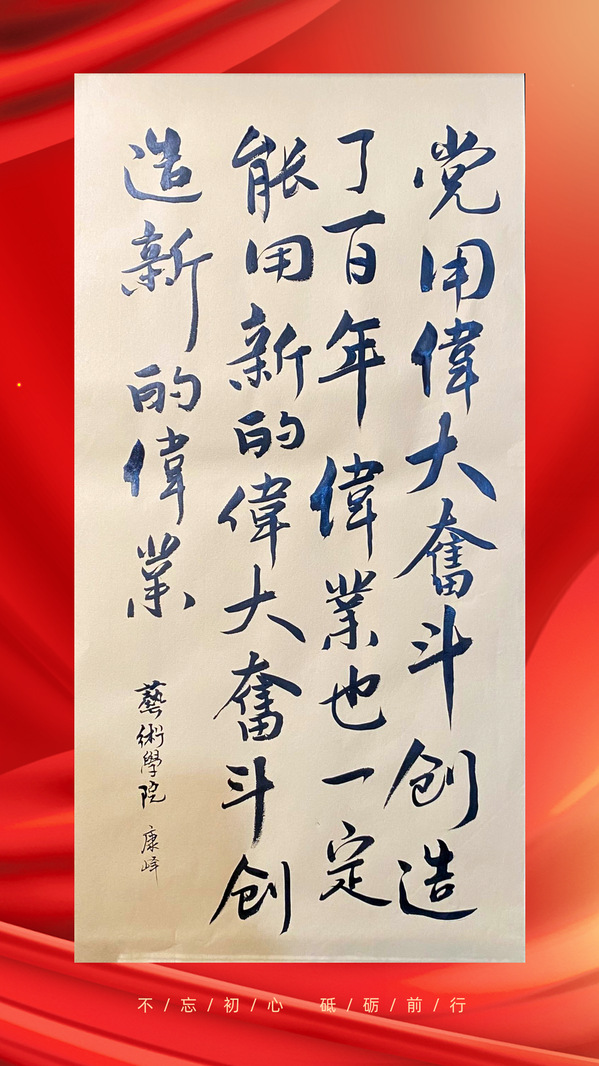 党用偉大奮斗创造
了百年偉業也一定
能用新的偉大奮斗创
造新的偉業
藝術學院 康峰
不/忘/初/心 砥/砺/前/行